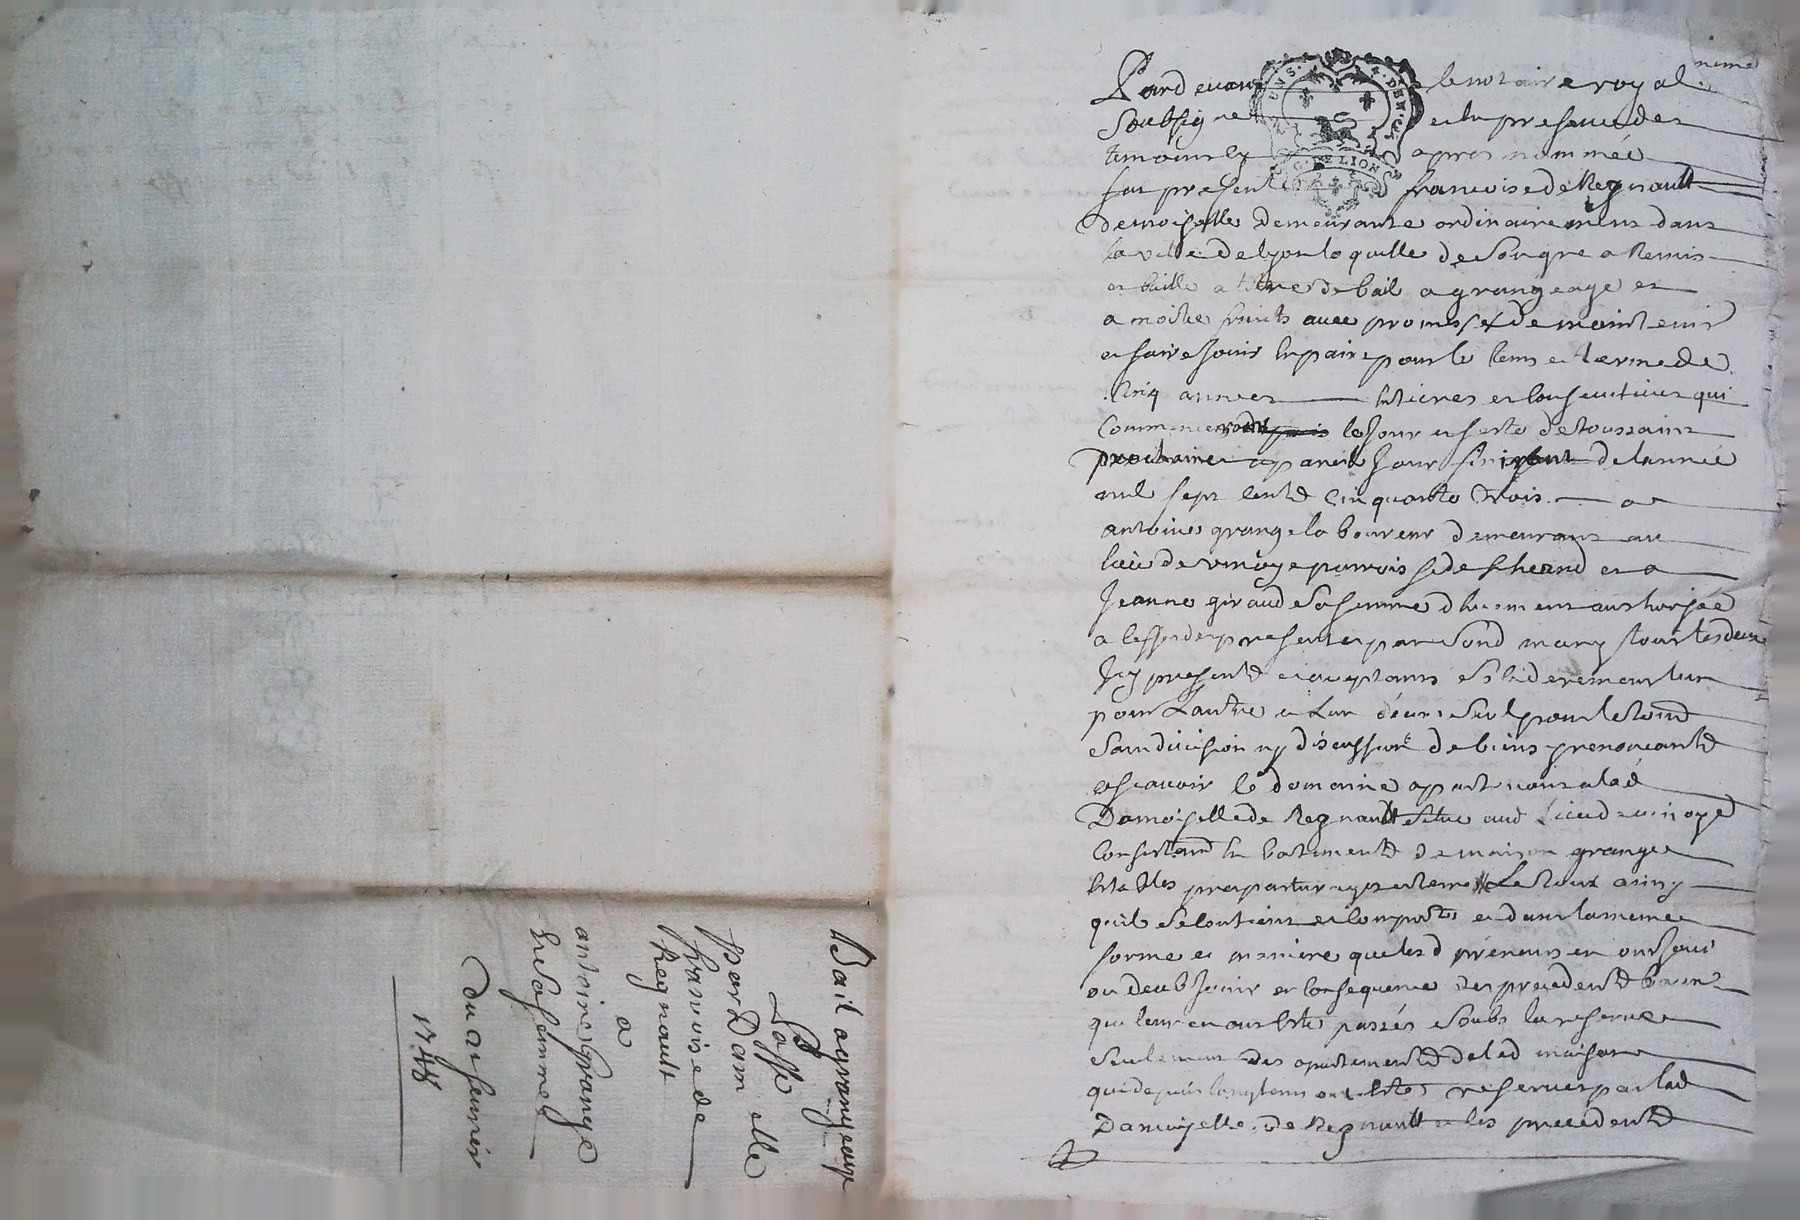 Bail a grangeage
passé
par Dam elle
francoise de
Regnault
a
antoine Grange
et sa femme
du 21 feurier
1748
Pardeuant le notaire royal
Soubsigne et en presence des
temoins cy apres nommée
fut presente francoise de Regnault
demoiselle demeurante ordinairement dans
la ville de lyon laquelle de son gre a Remis
et baille a titre de bail a grangeage et
a moitie fruits auec promesse de maintenir
et faire Jouir en paix pour le tems et terme de
Cinq annees entieres et consecutiues qui
Commenceront le Jour et feste de toussaint
prochaine a pareil Jour finiront de lannée
mil sept cents cinquante trois a
antoine grange laboureur demeurant au
lieu de vinoye parroisse de et a
Jeanne giraud sa femme dhuement authorisée
a leffet des presentes par son d mary tous les deux
Icy presents et acceptants solidairement lun
pour Lautre et Lun deux seul pour le tout
sans diuision ny discussion de biens y renoncants
a scauoir le domaine apartenant a lad
Damoiselle de Regnault situe aud Lieu de vinoye
Consistant en batiments de maison grange
estables prez pasturages et terres Le tout ainsy
quil se contient et comporte et dans la meme
forme et maniere que lesd preneurs en ont Joui
ou deub Jouir en consequence des precedents baux
qui leur en ont este passés soubs la reserue
seulement des apartements de lad maison
qui depuis longtems ont este reserues par lad
Damoiselle de Regnault et les precedents